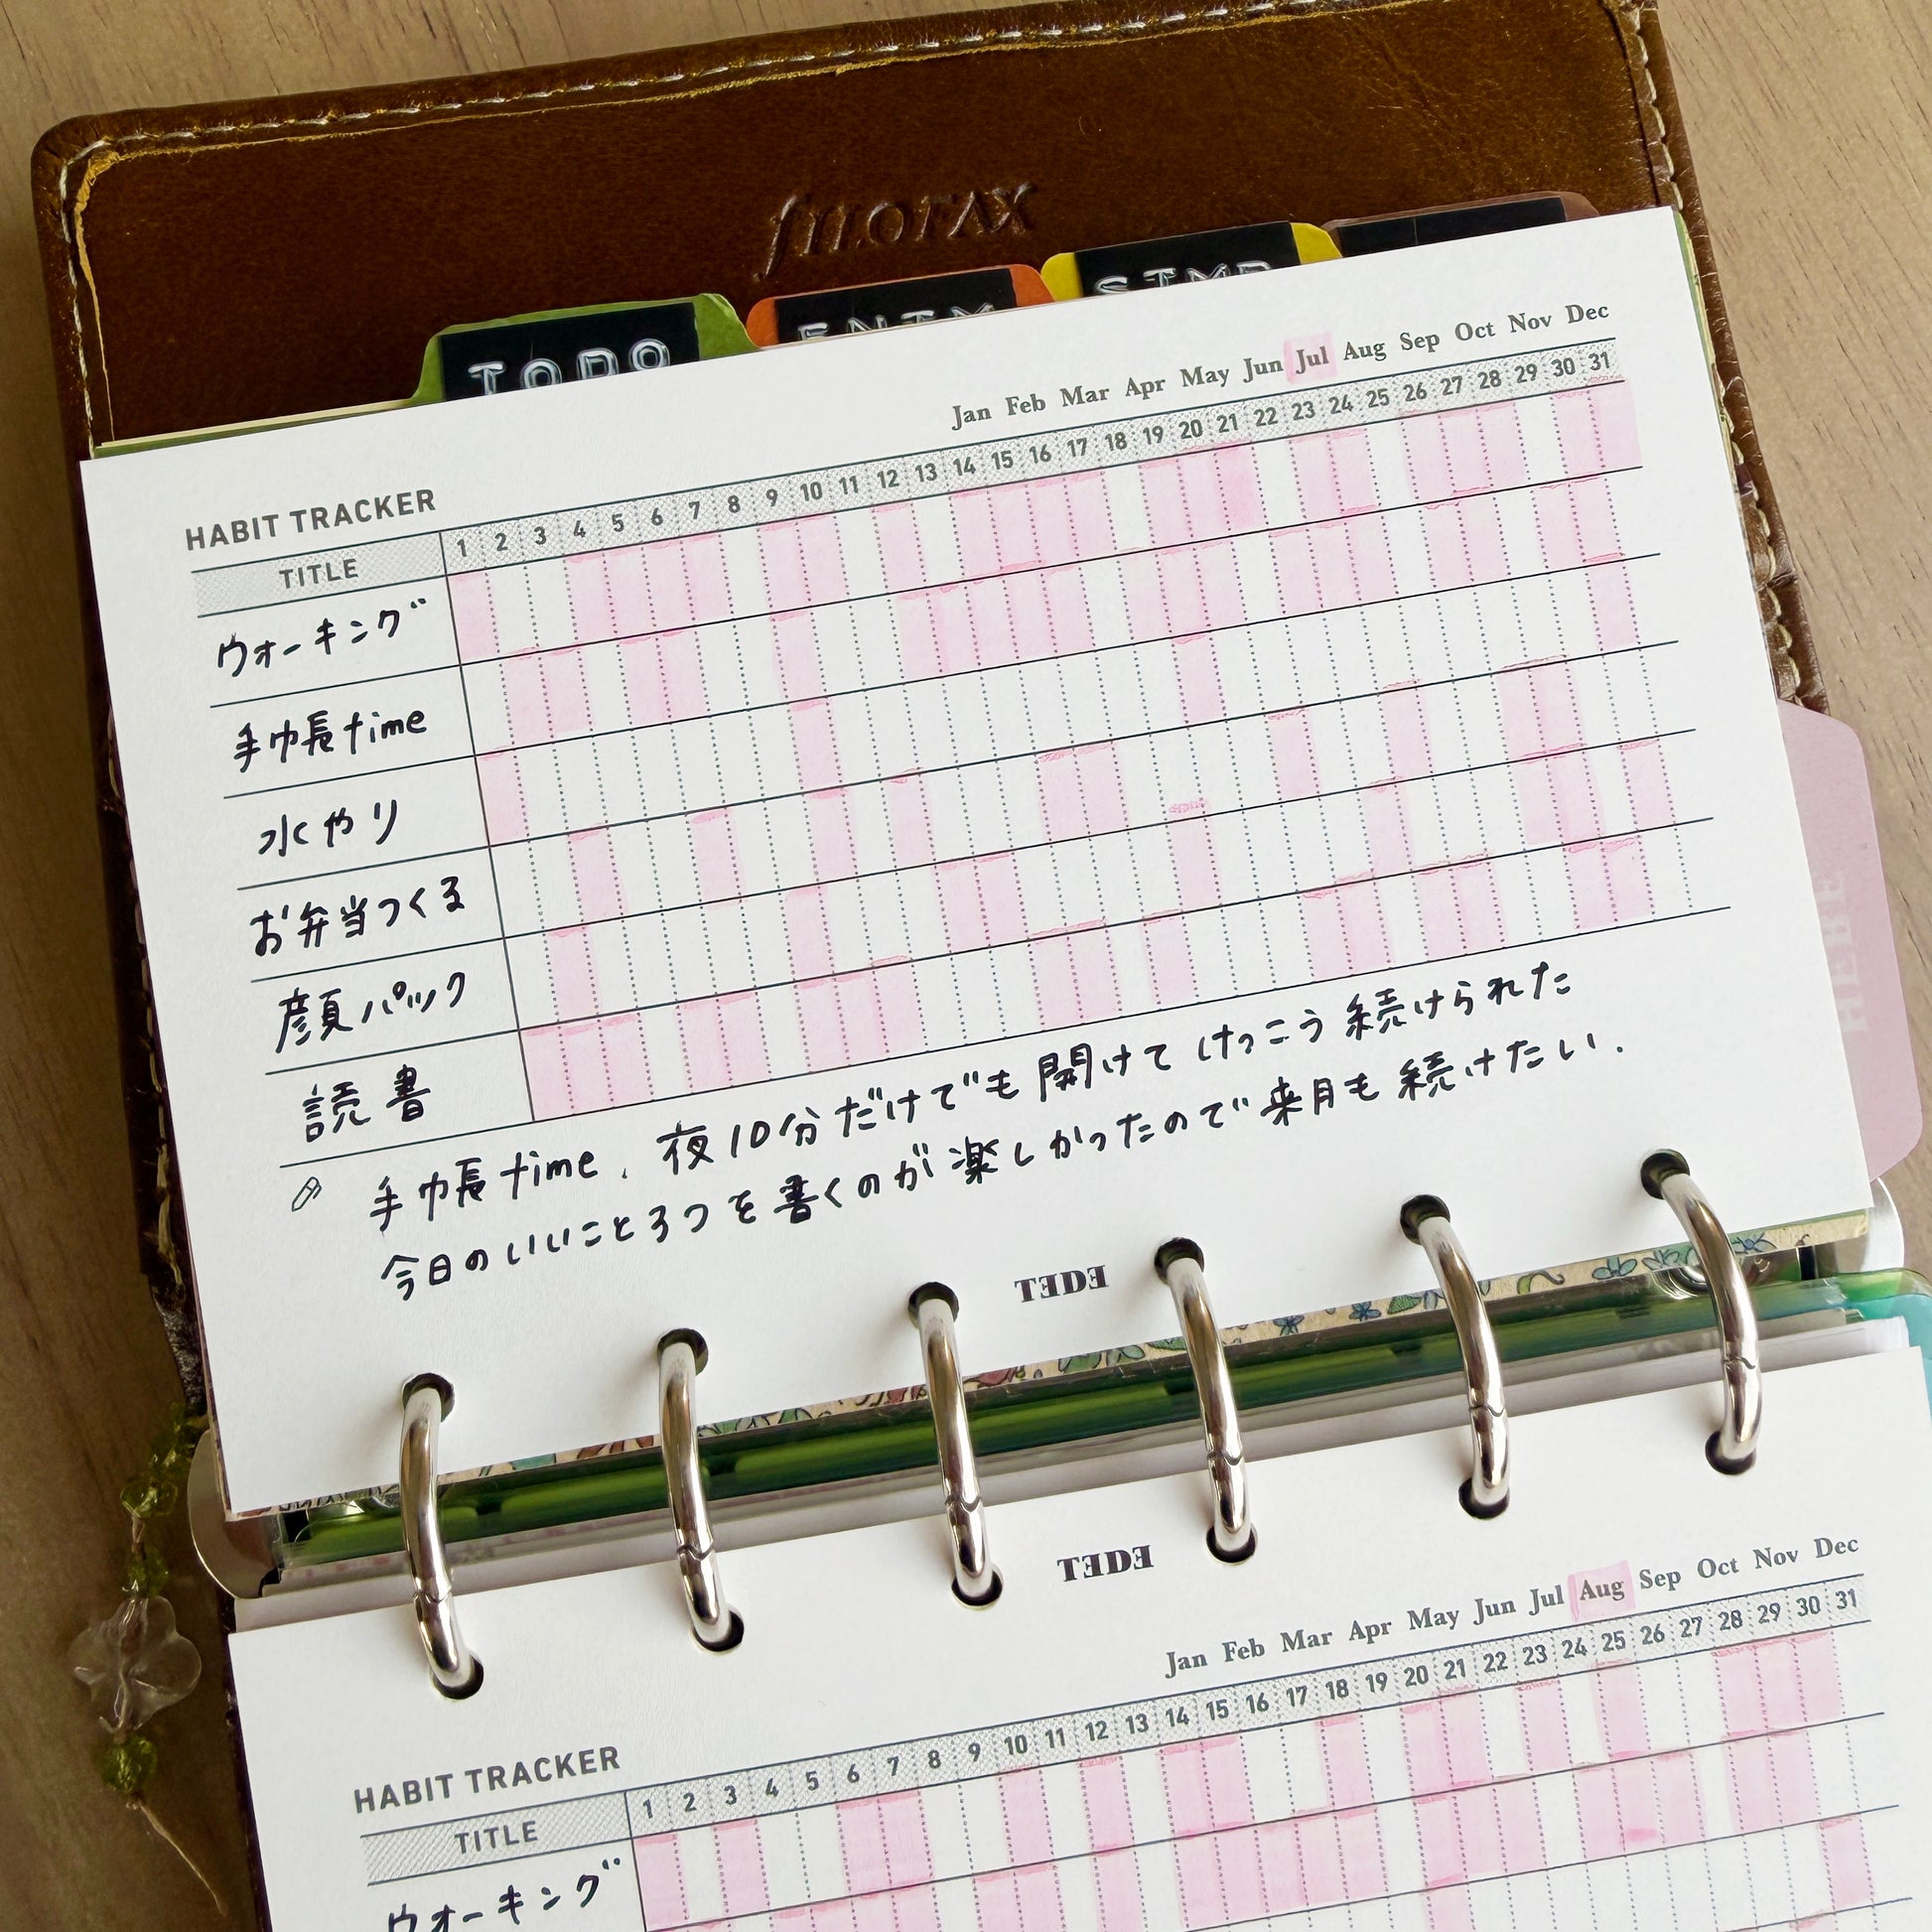 filofax
TODO
Jan Feb Mar Apr May Jun Jul Aug Sep Oct Nov Dec
HABIT TRACKER
TITLE 1 2 3 4 5 6 7 8 9 10 11 12 13 14 15 16 17 18 19 20 21 22 23 24 25 26 27 28 29 30 31
ウォーキング
手帳time
水やり
お弁当つくる
顔パック
読書
手帳time. 夜10分だけでも開けてけっこう続けられた
今日のいいこと3つを書くのが楽しかったので来月も続けたい.
Jan Feb Mar Apr May Jun Jul Aug Sep Oct Nov Dec
HABIT TRACKER
TITLE 1 2 3 4 5 6 7 8 9 10 11 12 13 14 15 16 17 18 19 20 21 22 23 24 25 26 27 28 29 30 31
ウォーキング